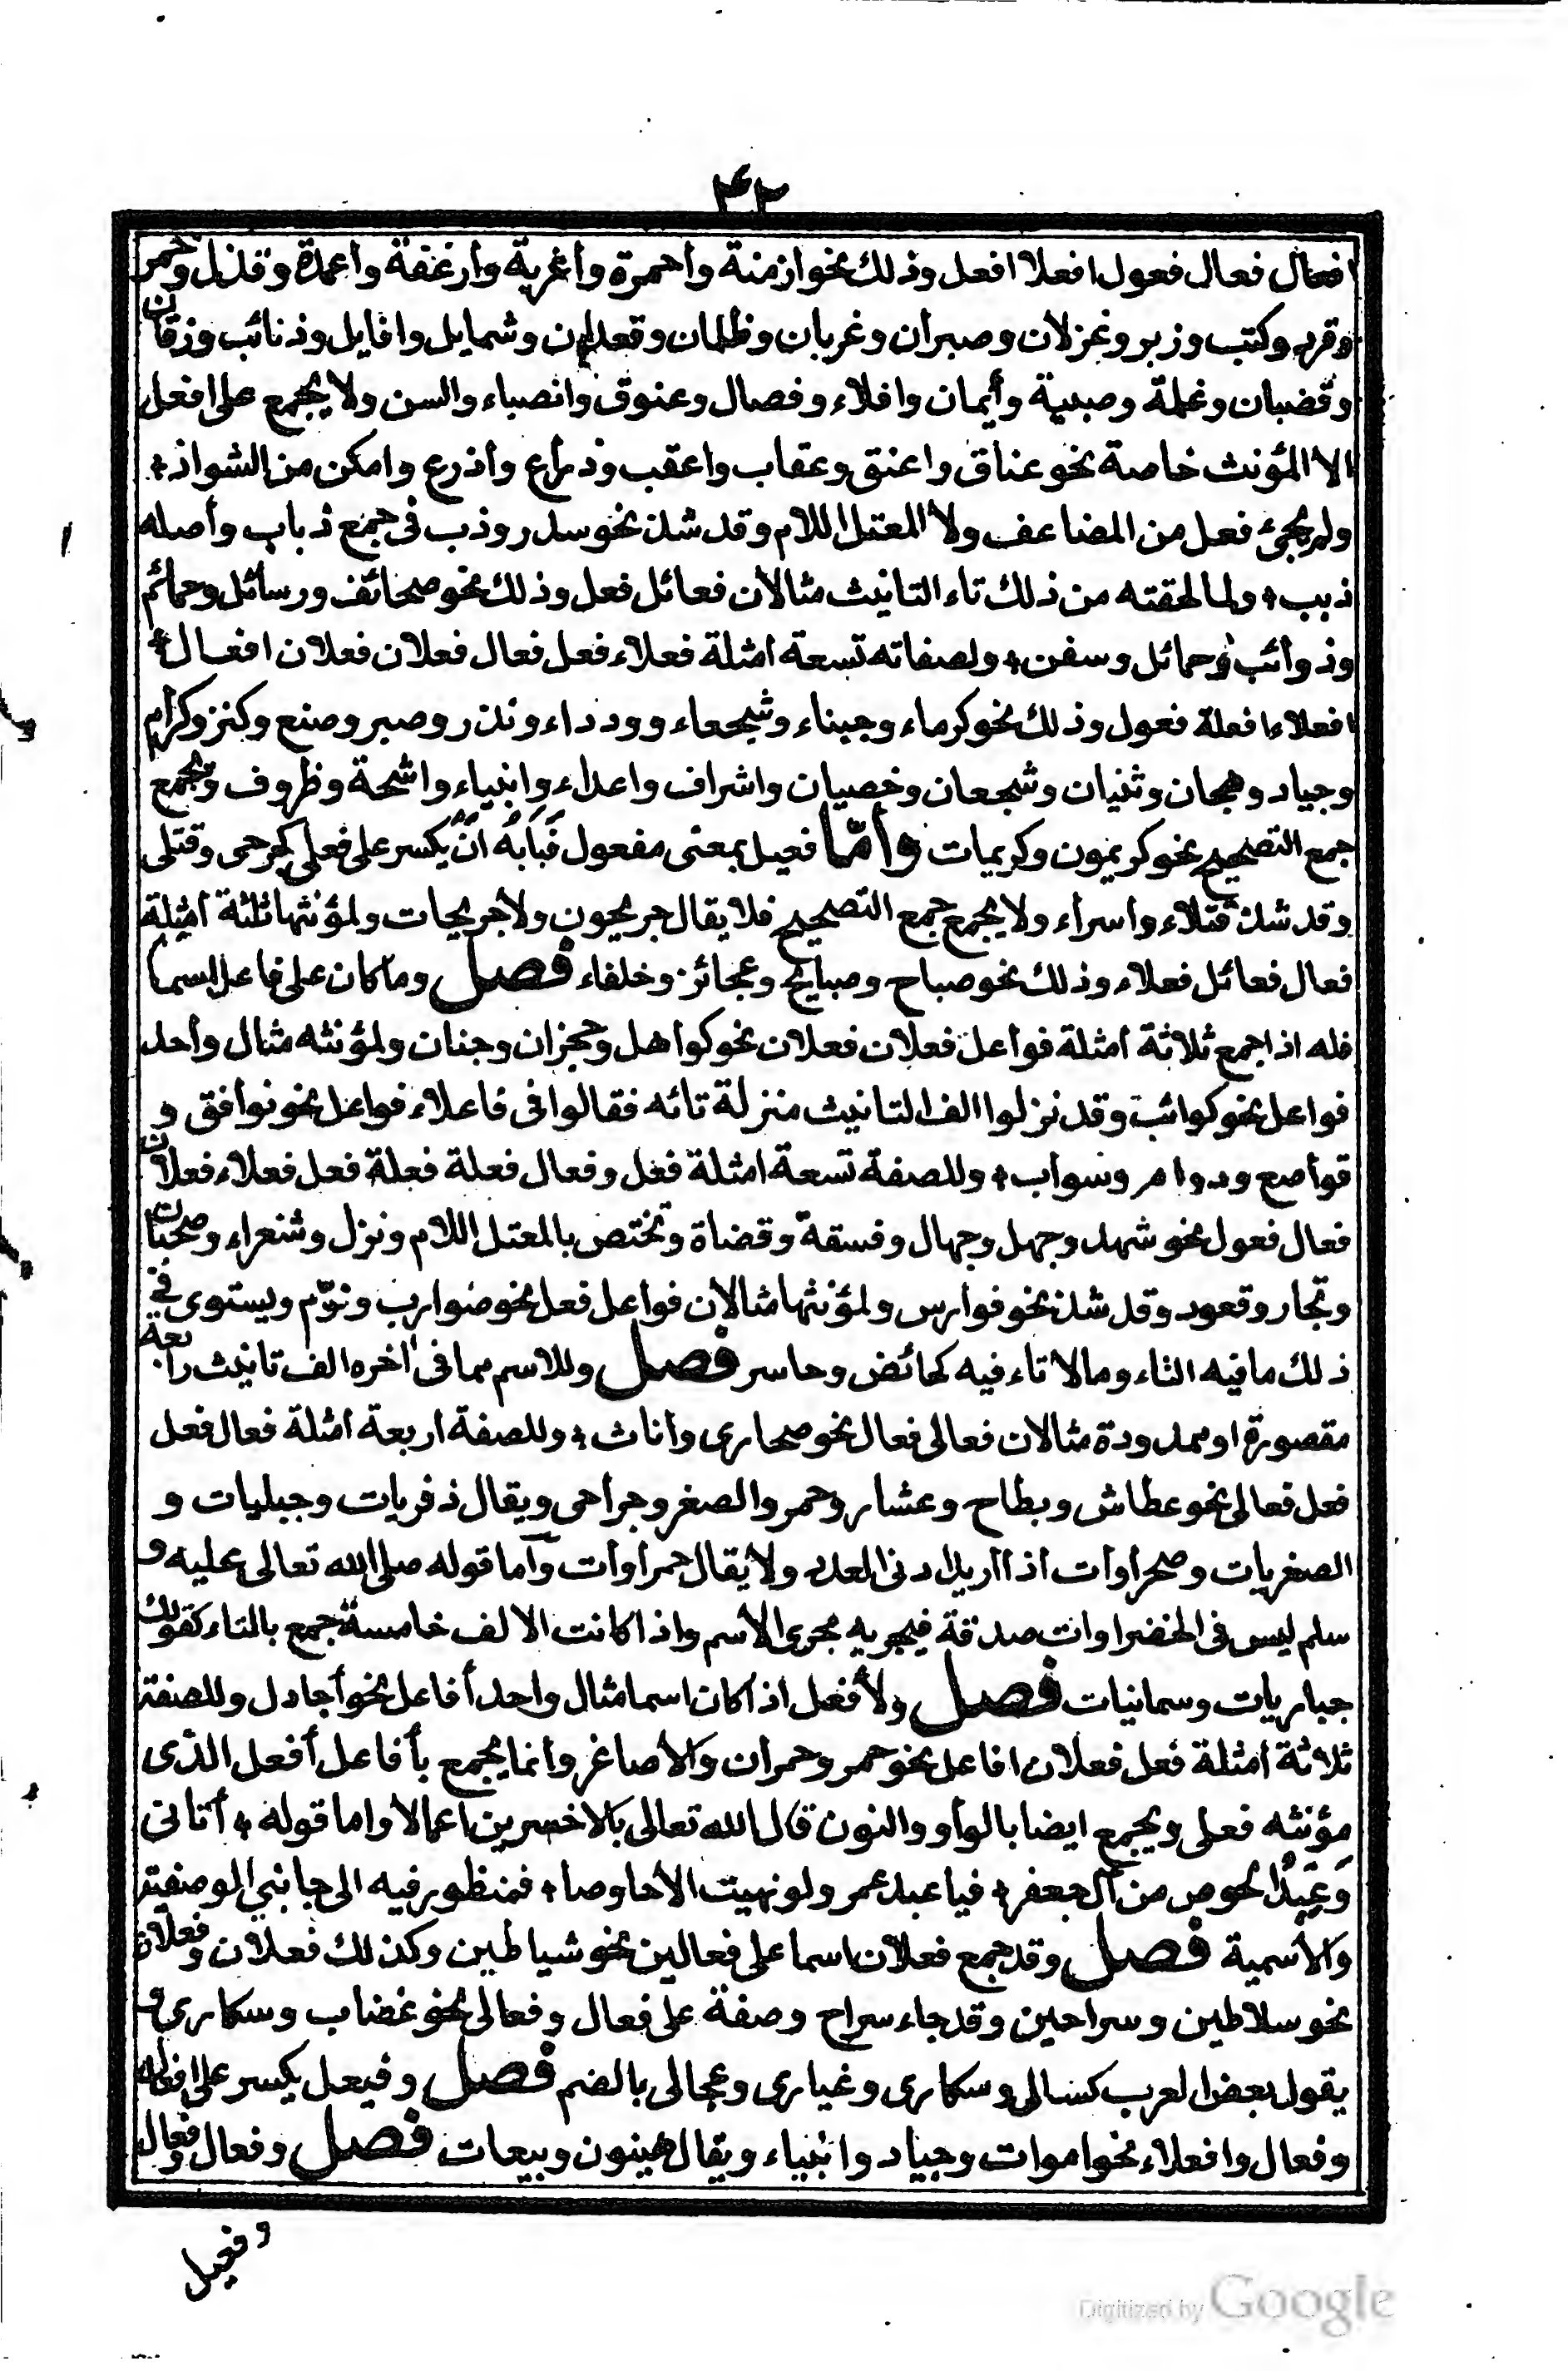 ٤٣
افعال فعال فعول افعلا افعل وذلك نحو ازمنة وأحمرة وأغربة وأرغفة وأعمدة وقذل وحمر
وقرد وكتب وزبر وغزلان وصبران وغربان وظلمان وقعدان وشمايل وافايل وذنائب وزقان
وقضبان وغلمة وصبية وأيمان وافلاء وفصال وعنوق وانصباء والسن ولا يجمع على افعل
الا المؤنث خاصة نحو عناق واعنق وعقاب واعقب وذراع وأذرع وامكن من الشواذ
ولم يجئ فعل من المضاعف ولا المعتل اللام وقد شذ نحو سدر وذب فى جمع ذباب وأصله
ذبب ولما لحقته من ذلك تاء التانيث مثالان فعائل فعل وذلك نحو صحائف ورسائل وحمائم
وذوائب وحمائل وسفن ولصفاته تسعة امثلة فعلاء فعل فعال فعلان فعلان افعال
افعلاء افعلة فعول وذلك نحو كرماء وجبناء وشجعاء وودداء ونذر وصبر وصنع وكنز وكرام
وجياد وهجان وثنيان وشجعان وخصيان واشراف واعداء وانبياء واشحة وظروف ويجمع
جمع التصحيح نحو كريمون وكريمات وأمّا فعيل بمعنى مفعول فَبَابُهُ انْ يكسر على فعلى كجرحى وقتلى
وقد شذ قتلاء وأسراء ولا يجمع جمع التصحيح فلا يقال جريحون ولا جريحات ولمؤنثها ثلثة أمثلة
فعال فعائل فعلاء وذلك نحو صباح وصبايح وعجائز وخلفاء فصل وما كان على فاعل اسما
فله اذا جمع ثلاثة أمثلة فواعل فعلان فعلان نحو كواهل وحجزان وجنان ولمؤنثه مثال واحد
فواعل نحو كواثب وقد نزلوا الف التانيث منزلة تائه فقالوا فى فاعلاء فواعل نحو نوافق و
قواصع ودوام وسواب وللصفة تسعة امثلة فعل وفعال فعلة فعلة فعل فعلاء فعلان
فعال فعول نحو شهد وجهل وجهال وفسقة وقضاة وتختص بالمعتل اللام ونزل وشعراء وصحبان
وتجار وقعود وقد شذ نحو فوارس ولمؤنثها مثالان فواعل فعل نحو ضوارب ونوّم ويستوى فى
ذلك ما فيه التاء وما لا تاء فيه كحائض وحاسر فصل وللاسم مما فى اخره الف تانيث رابعة
مقصورة او ممدودة مثالان فعالى فعال نحو صحارى وأناث وللصفة أربعة أمثلة فعال فعل
فعل فعالى نحو عطاش وبطاح وعشار وحمر والصغر وجراحى ويقال ذفريات وجبليات و
الصغريات وصحراوات اذا أريد ادنى العدد ولا يقال حمراوات وأما قوله صلى الله تعالى عليه و
سلم ليس فى الخضراوات صدقة فيجريه مجرى الأسم واذا كانت الالف خامسة جمع بالتاء كقولك
حباريات وسمانيات فصل ولأفعل اذا كان اسما مثال واحد أفاعل نحو أجادل وللصفة
ثلاثة أمثلة فعل فعلان افاعل نحو حمر وحمران والأصاغر وانما يجمع بأفاعل أفعل الذى
مؤنثه فعلى ويجمع ايضا بالواو والنون قال الله تعالى بالاخسرين اعمالا واما قوله أتانى
وَعيدُ الحوص من آل جعفر فيا عبد عمر ولو نهيت الأحاوصا فمنظور فيه الى جانبي الوصفية
والأسمية فصل وقد جمع فعلان اسما على فعالين نحو شياطين وكذلك فعلان وفعلان
نحو سلاطين وسراحين وقد جاء سراح وصفة على فعال وفعالى نحو غضاب وسكارى و
يقول بعض العرب كسالى وسكارى وغيارى وعجالى بالضم فصل وفيعل يكسر على افعال
وفعال وافعلاء نحو اموات وجياد وانبياء ويقال هينون وبيعات فصل وفعال وفعال
وفعيل
Digitized by Google